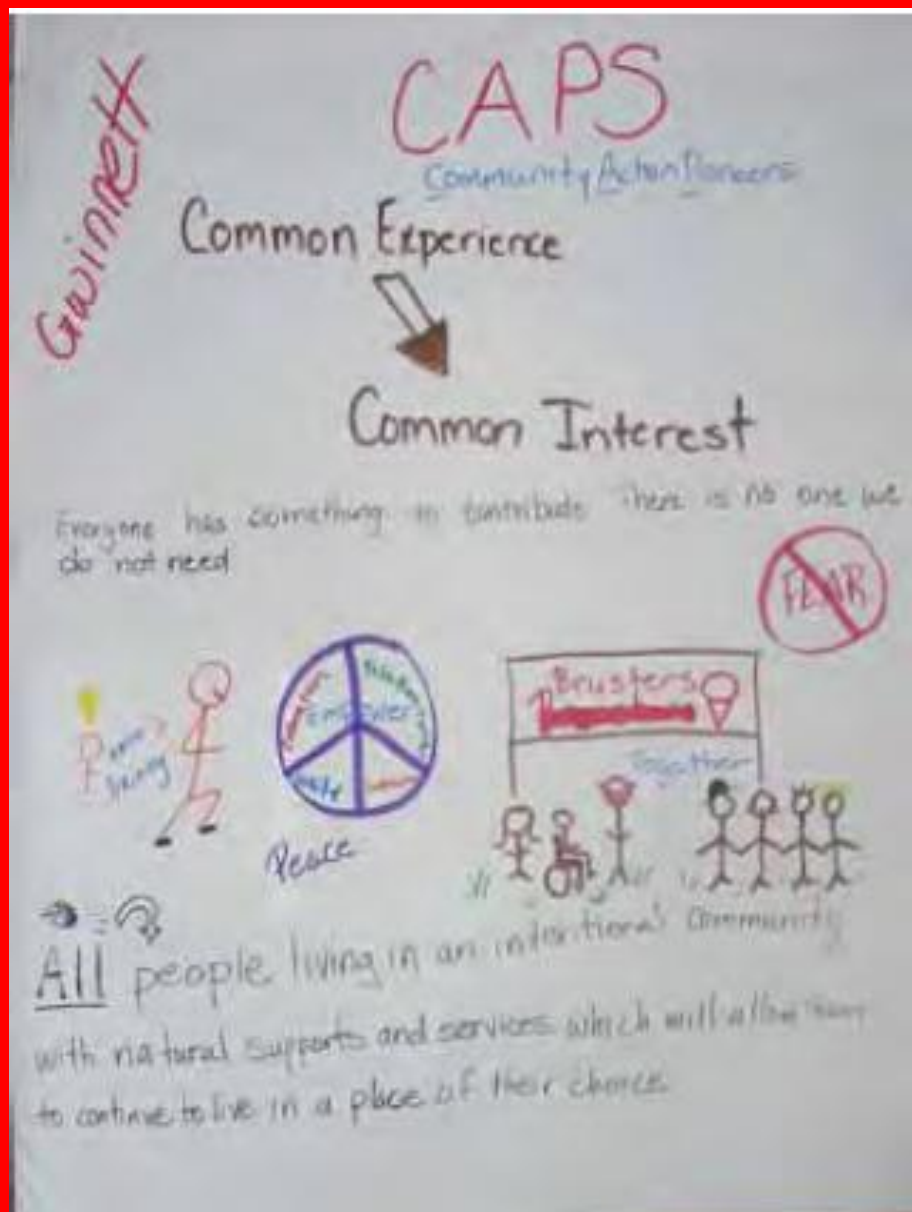 Gwinnett
CAPS
Community Action Pioneers
Common Experience
Common Interest
Everyone has something to contribute There is no one we
do not need
FEAR
Brusters
Together
Empower
Peace
All people living in an intentional community
with natural supports and services which will allow
to continue to live in a place of their choice